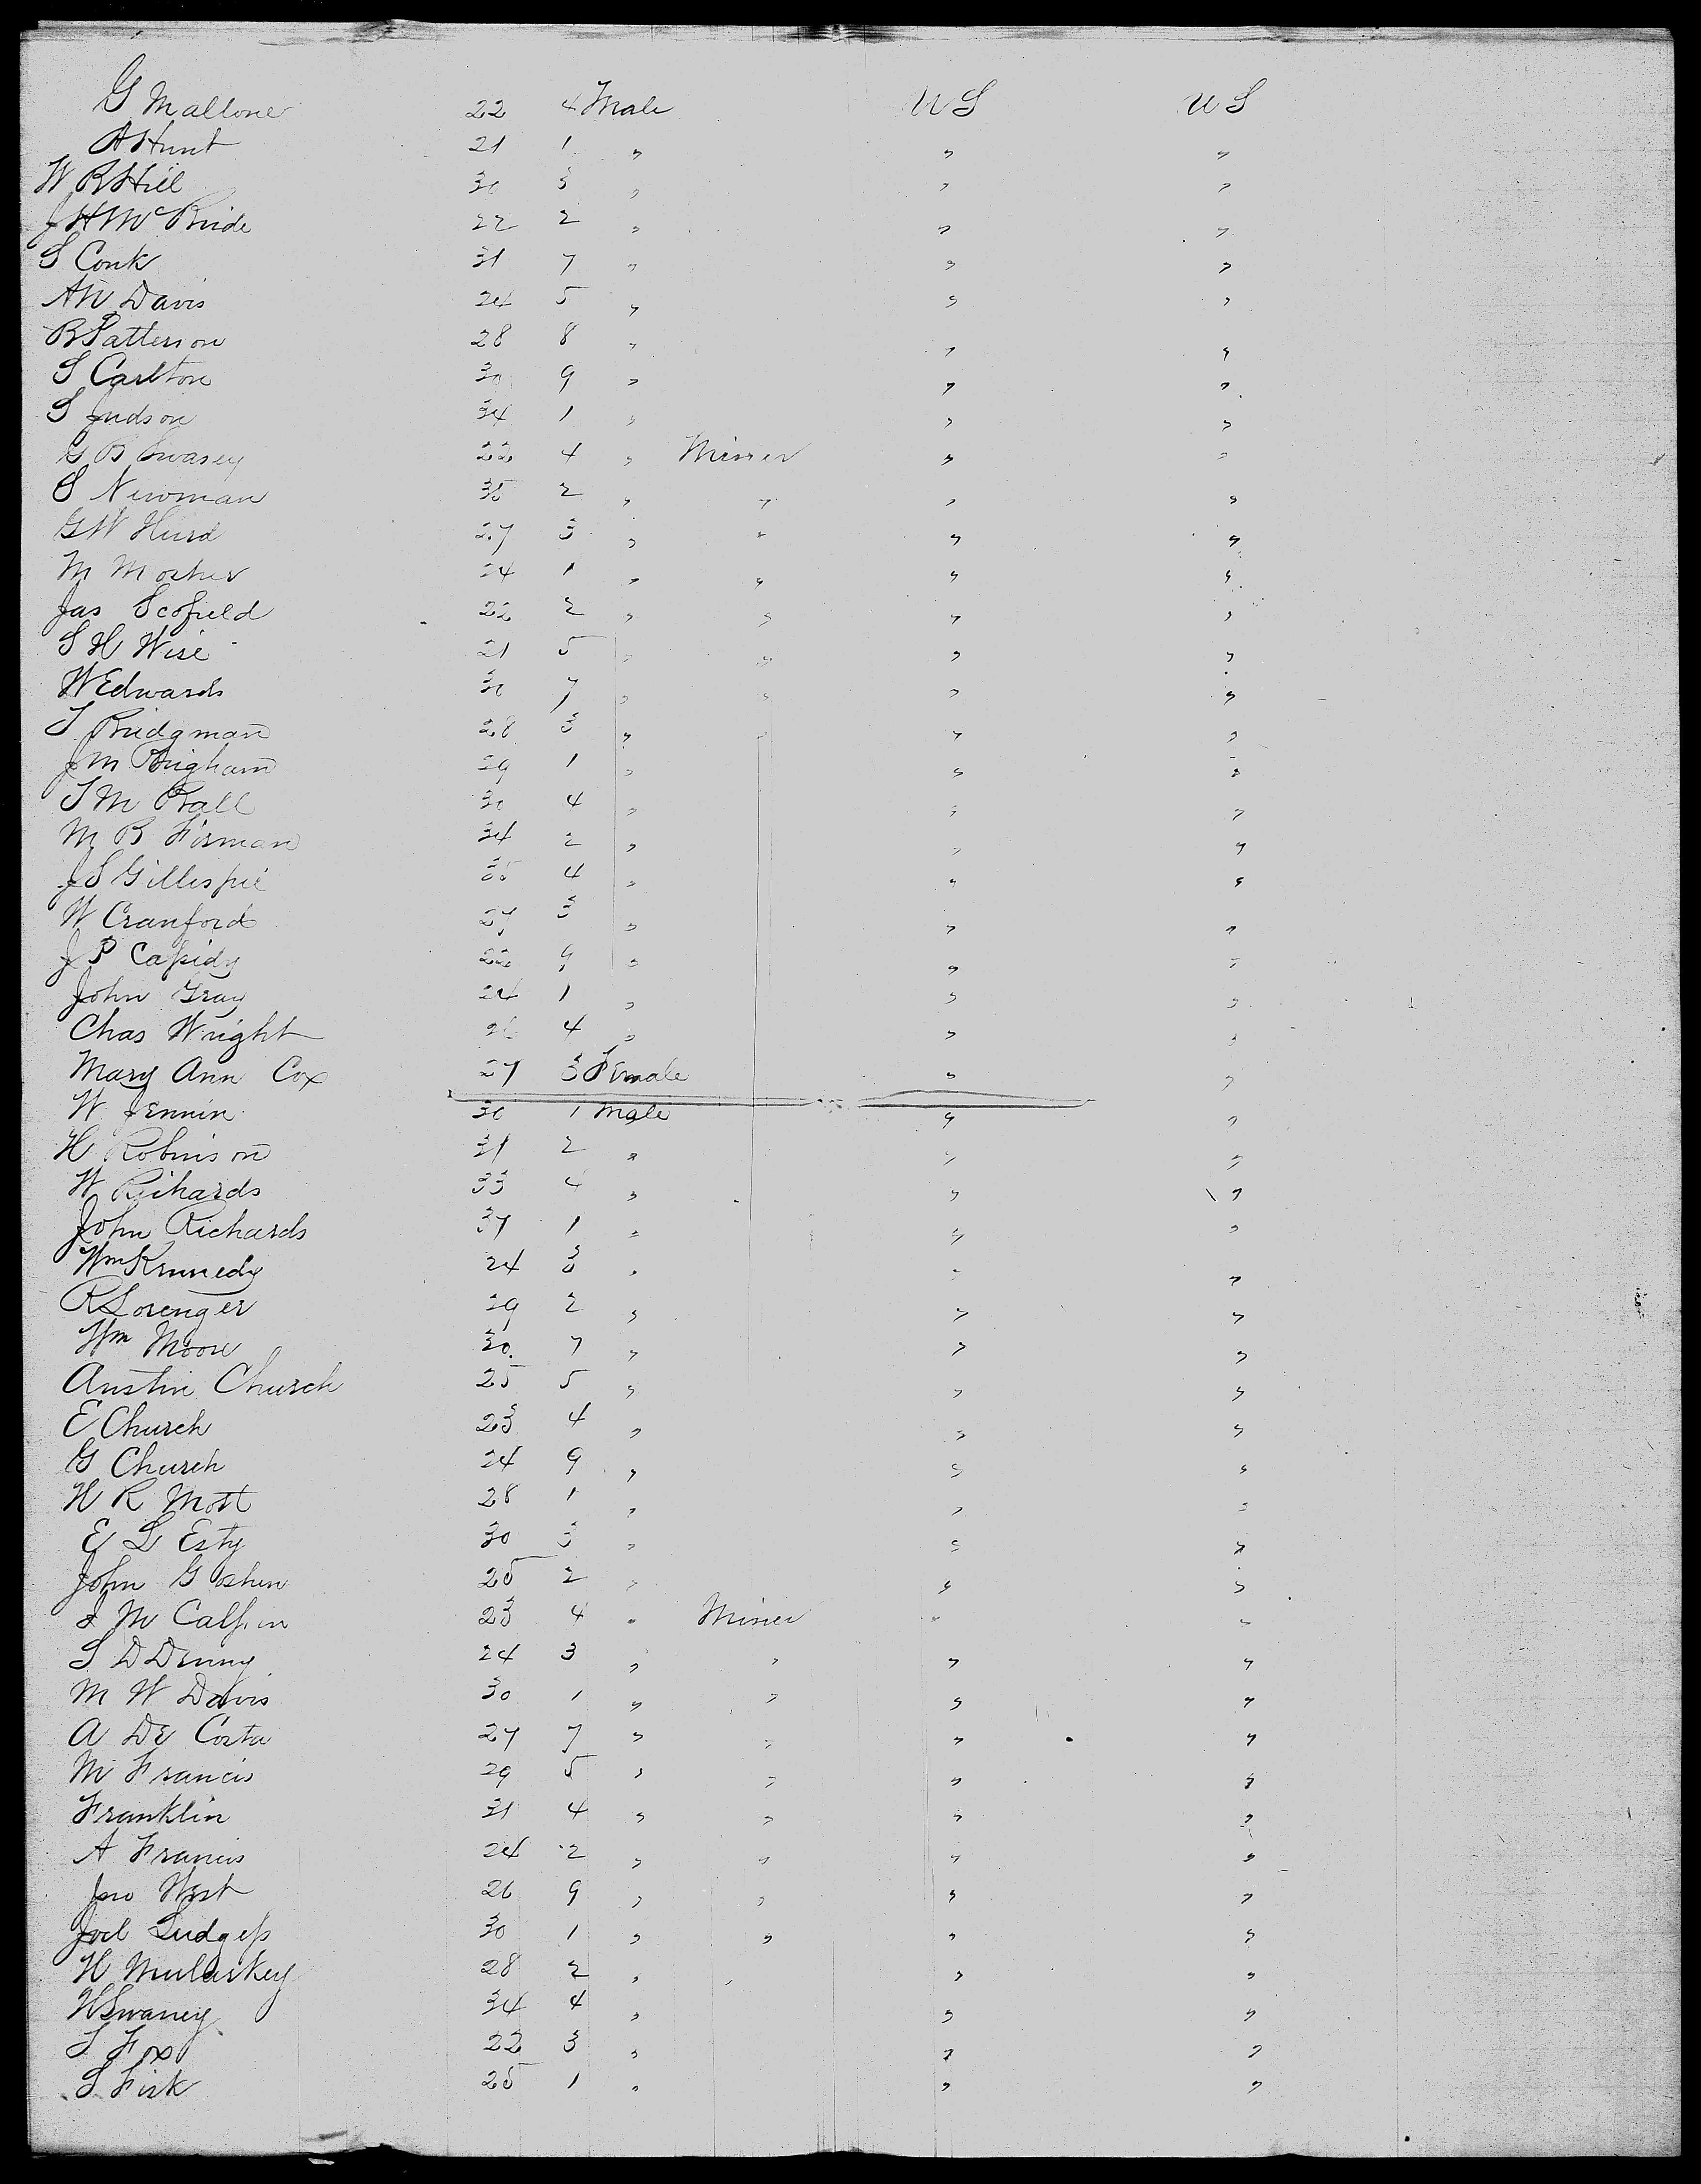 G Mallone 22 4 Male U S U S
A Hunt 21 1 " " "
W R Hill 30 3 " " "
J H McBride 22 2 " " "
S Conk 31 7 " " "
A W Davis 24 5 " " "
B Patterson 28 8 " " "
S Carlton 30 9 " " "
S Judson 34 1 " " "
G B Swasey 22 4 " Miner " "
S Newman 35 2 " " " "
G W Hurd 27 3 " " " "
M Mosher 24 1 " " " "
Jas Scofield 22 2 " " " "
S H Wise 21 5 " " " "
W Edwards 30 7 " " " "
T Bridgman 28 3 " " " "
J M Brigham 29 1 " " "
T M Ball 30 4 " " "
M B Firman 34 2 " " "
J S Gillispie 35 4 " " "
W Cranford 27 3 " " "
J P Cassidy 22 9 " " "
John Gray 24 1 " " "
Chas Wright 26 4 " " "
Mary Ann Cox 27 3 Female " "
W Jennin 30 1 Male " "
H Robinson 31 2 " " "
W Richards 33 4 " " "
John Richards 37 1 " " "
Wm Kennedy 24 3 " " "
R Lorenger 29 2 " " "
Wm Moore 30 7 " " "
Austin Church 25 5 " " "
E Church 23 4 " " "
G Church 24 9 " " "
H R Mott 28 1 " " "
E L Esty 30 3 " " "
John Goshen 25 2 " " "
J M Calpin 23 4 " Miner " "
S D Denny 24 3 " " " "
M W Davis 30 1 " " " "
A De Costa 27 7 " " " "
M Francis 29 5 " " " "
Franklin 31 4 " " " "
A Francis 24 2 " " " "
Jno West 26 9 " " " "
Joel Ludgess 30 1 " " " "
H Mularkey 28 2 " " " "
W Swaney 34 4 " " "
T Fox 22 3 " " "
S Fisk 25 1 " " "